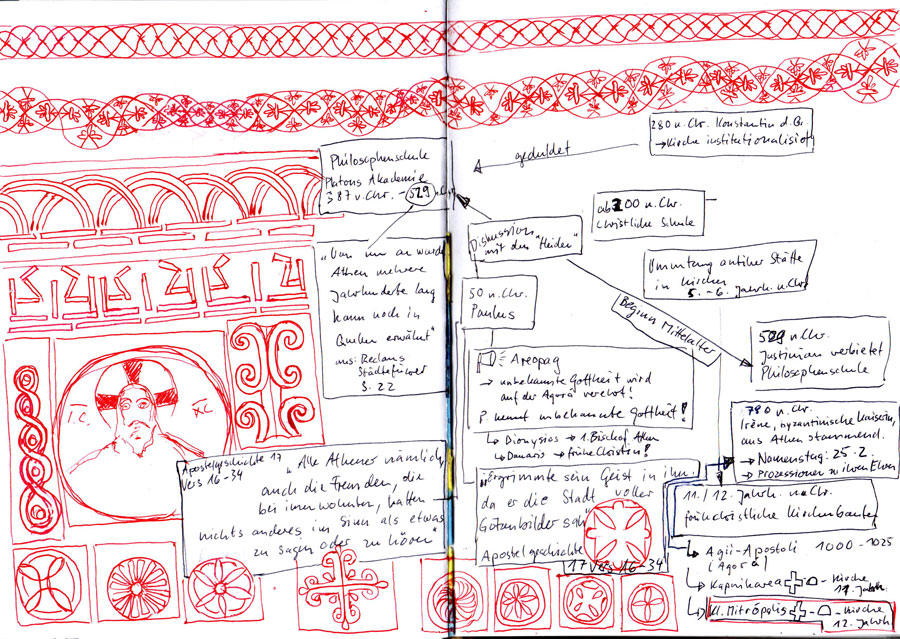 280 n. Chr. Konstantin d. Gr.
→ Kirche institutionalisiert
geduldet
Philosophenschule
Platons Akademie
387 v. Chr. – 529 n. Chr.
ab 200 n. Chr.
christliche Schule
Diskussion
mit den „Heiden“
„Von nun an wurde
Athen mehrere
Jahrhunderte lang
kaum noch in
Quellen erwähnt“
aus: Reclams
Städteführer
S. 22
Umnutzung antiker Stätte
in Kirchen
5. – 6. Jahrh. n. Chr.
50 n. Chr.
Paulus
Beginn Mittelalter
529 n. Chr.
Justinian verbietet
Philosophenschule
Areopag
→ unbekannte Gottheit wird
auf der Agora verehrt!
P. kennt unbekannte Gottheit!
↳ Dionysios → 1. Bischof Athen
↳ Damaris → frühe Christen!
I.C. X.C.
780 n. Chr.
Irène, byzantinische Kaiserin,
aus Athen stammend.
→ Namenstag: 25.2.
→ Prozessionen zu ihren Ehren
Apostelgeschichte 17
Vers 16-34
„Alle Athener nämlich,
auch die Fremden, die
bei ihnen wohnten, hatten
nichts anderes im Sinn als etwas
zu sagen oder zu hören“
„Ergrimmte sein Geist in ihm
da er die Stadt voller
Götzenbilder sah“
Apostelgeschichte
17 Vers 16-34
11./12. Jahrh. n. Chr.
frühchristliche Kirchenbauten
↳ Agii-Apostoli 1000 - 1025
(Agora)
↳ Kapnikarea - Kirche
11. Jahrh.
↳ Kl. Mitrópolis - Kirche
12. Jahrh